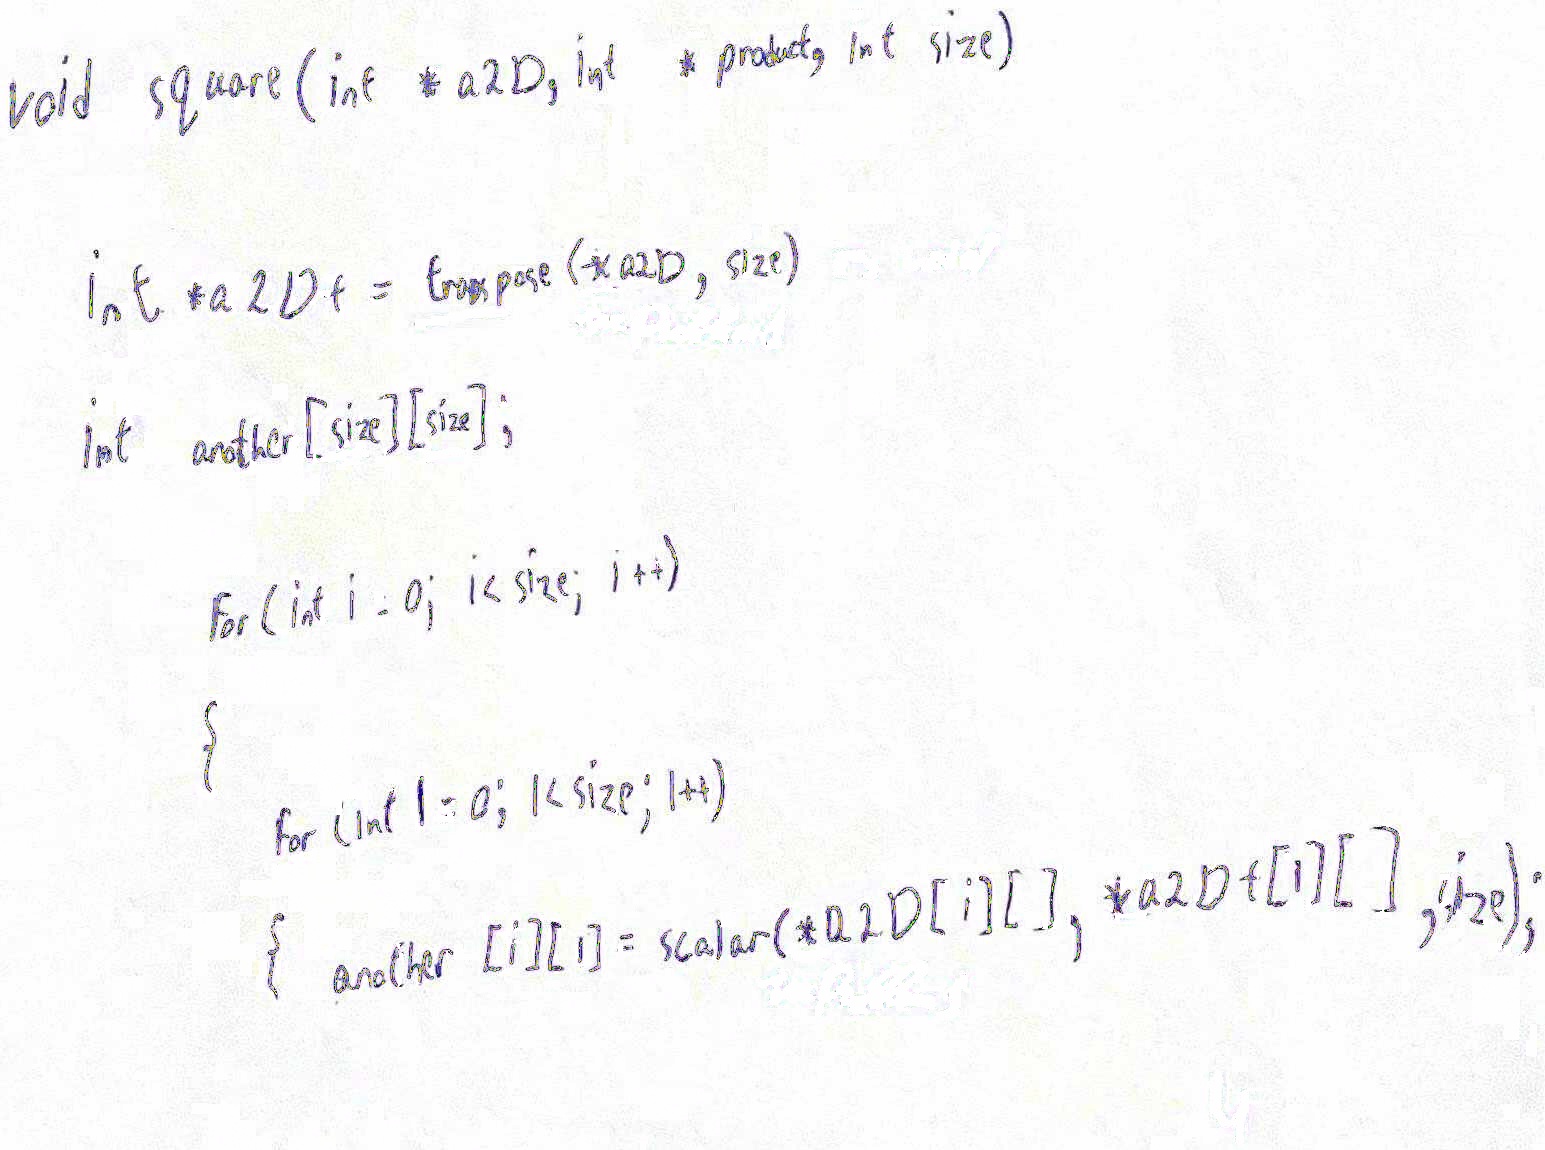 void square(int *a2D, int * product, int size)
int *a2Dt = transpose(*a2D, size)
int another[size][size];
for(int i=0; i<size; i++)
{
for(int l=0; l<size; l++)
{ another [i][l] = scalar(*a2D[i][], *a2Dt[l][], size);